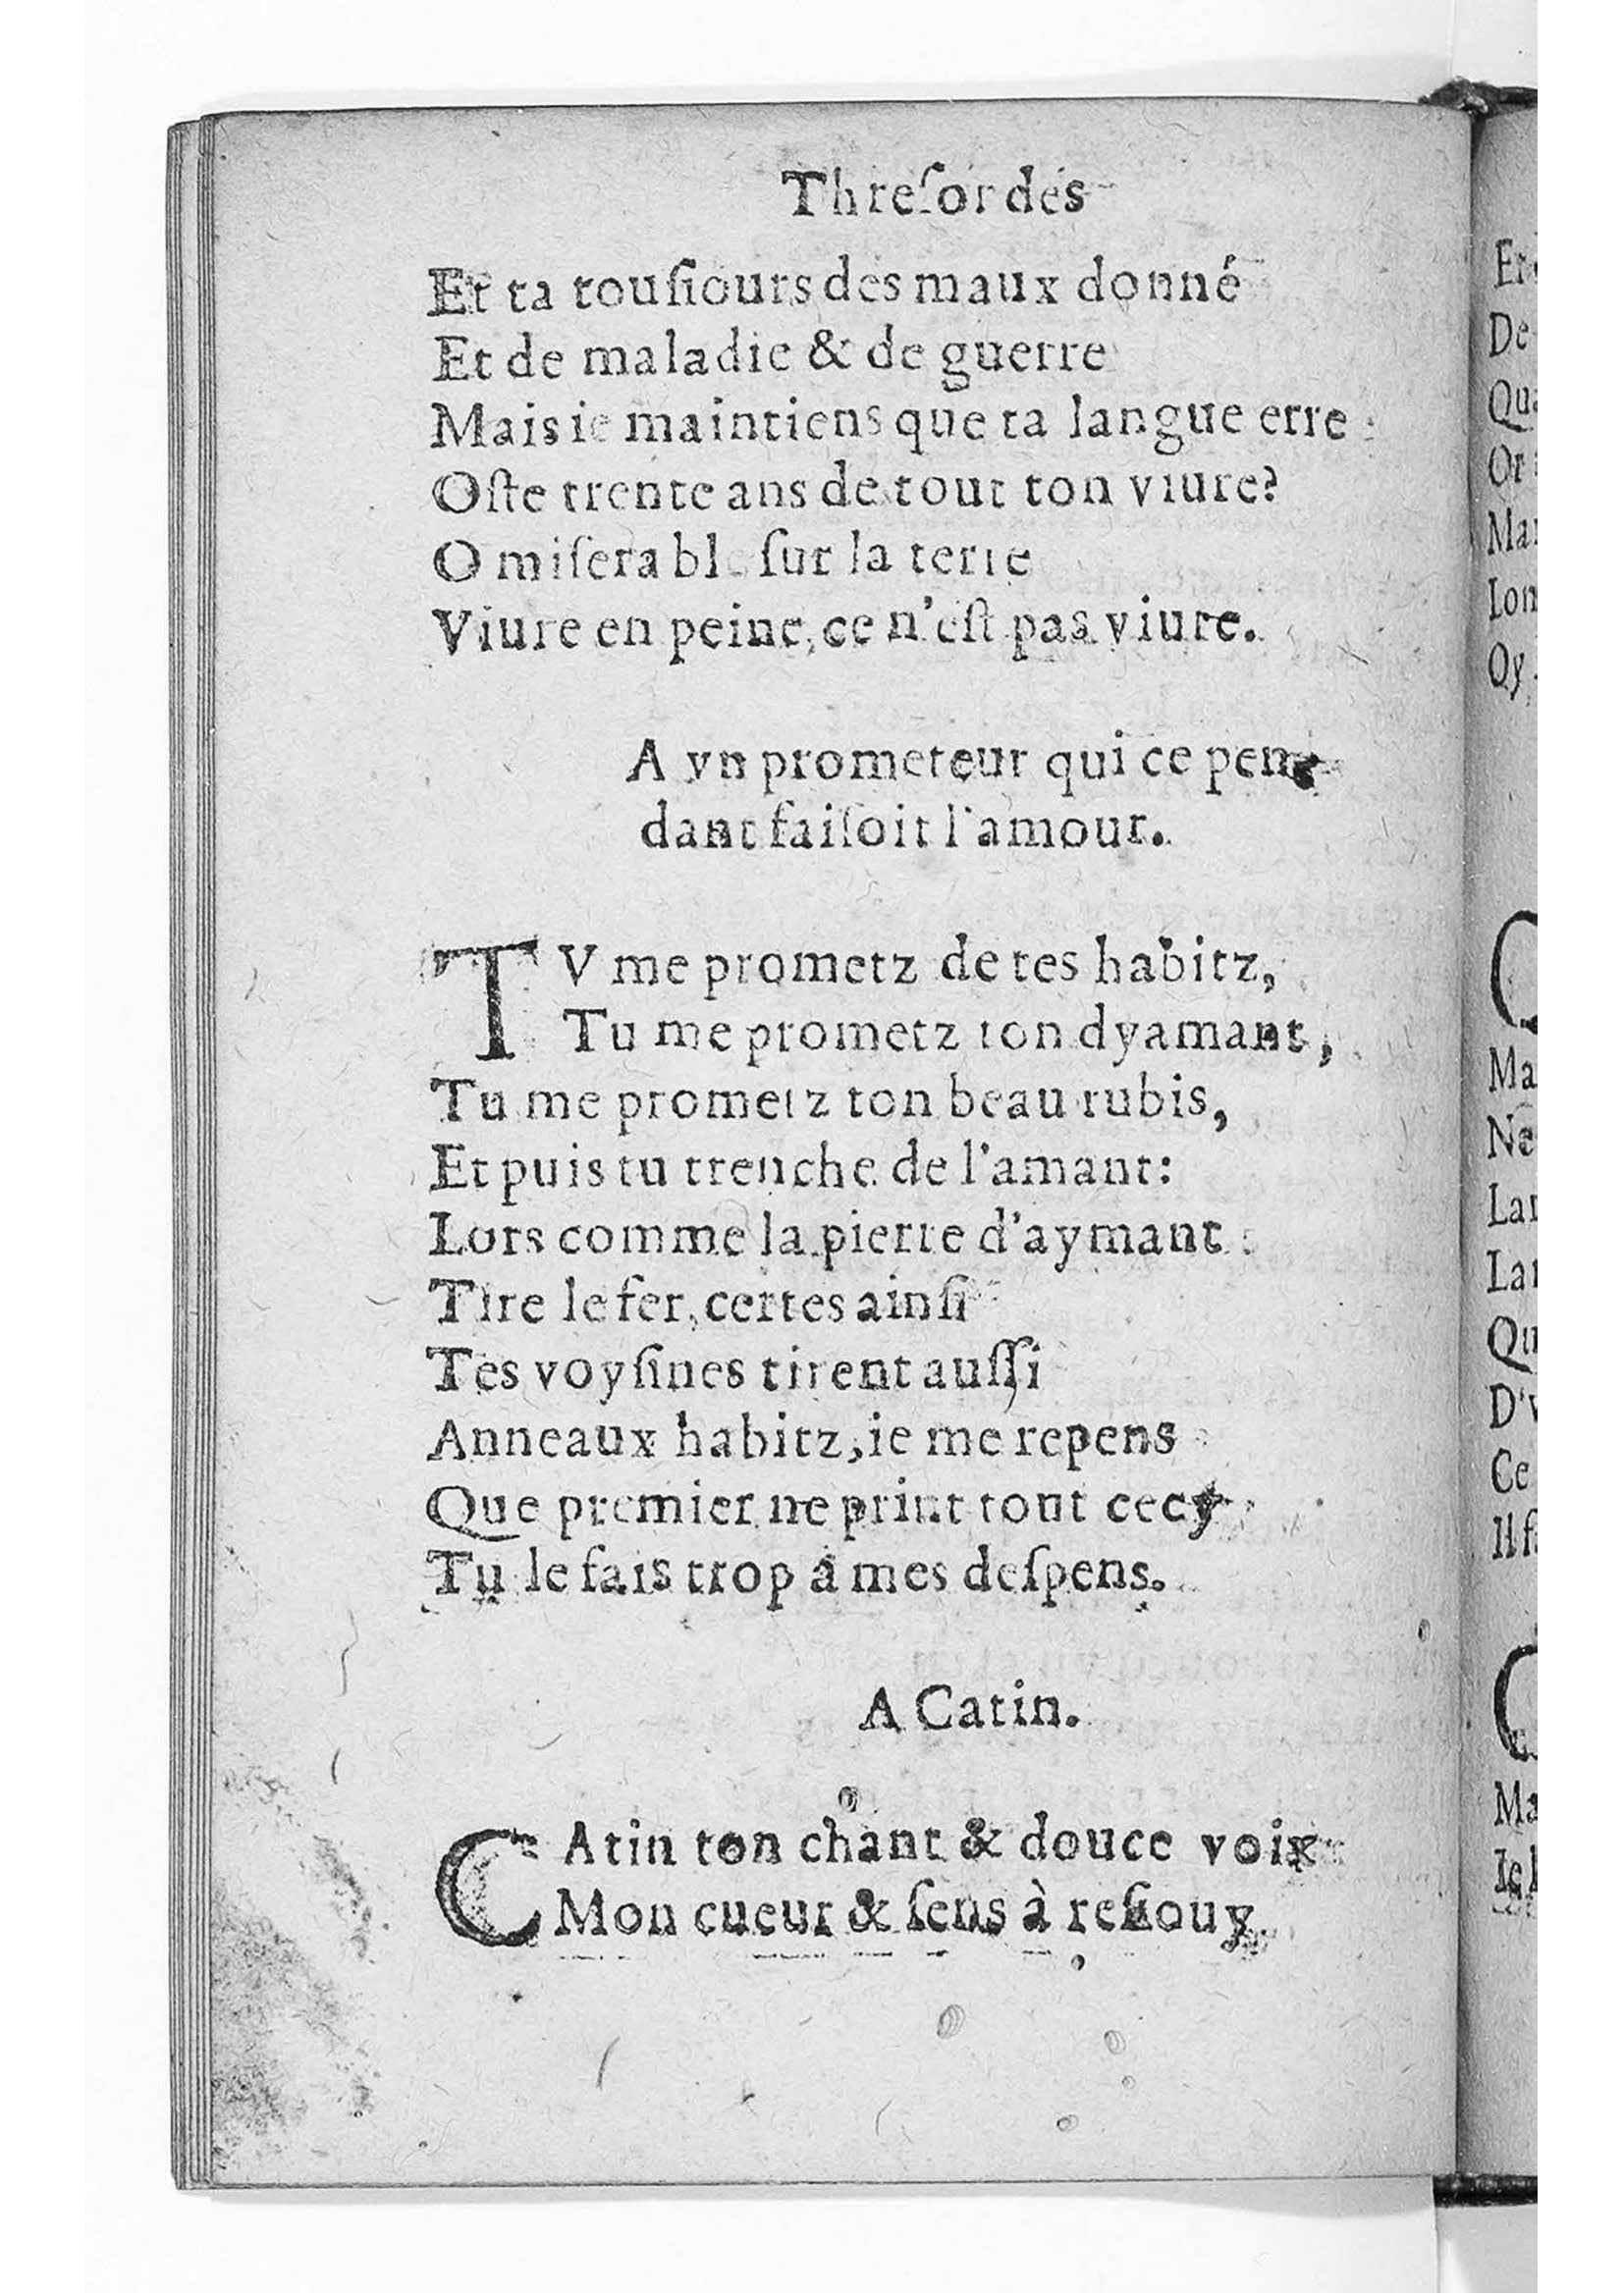 Threſor des
Et ta touſiours des maux donné
Et de maladie & de guerre
Mais ie maintiens que ta langue erre :
Oſte trente ans de tout ton viure?
O miſerable ſur la terre
Viure en peine, ce n'eſt pas viure.
A vn prometeur qui ce pen-
dant faiſoit l'amour.
TV me prometz de tes habitz,
Tu me prometz ton dyamant,
Tu me prometz ton beau rubis,
Et puis tu trenche de l'amant:
Lors comme la pierre d'aymant
Tire le fer, certes ainſi
Tes voyſines tirent auſſi
Anneaux habitz, ie me repens
Que premier ne print tout cecy
Tu le fais trop à mes deſpens.
A Catin.
CAtin ton chant & douce voix
Mon cueur & ſens à reſiouy
Et
De
Or
Lon
Qy
Ma
Ne
Ce
Ma